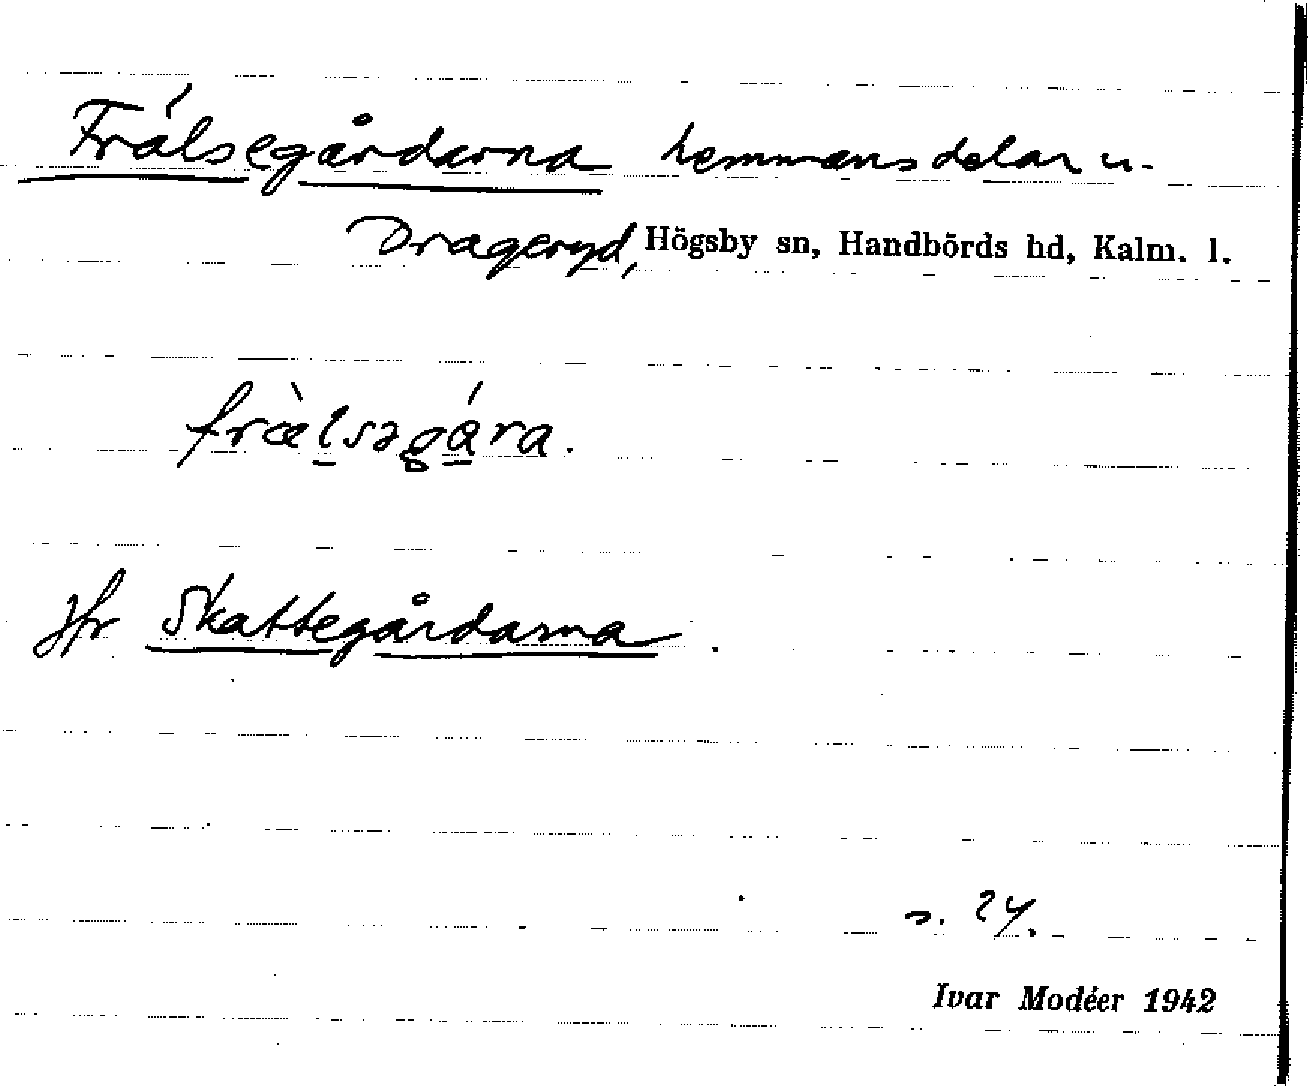 Frälsegårdarna hemmansdelar u.
Drageryd, Högsby sn, Handbörds hd, Kalm. l.
fræ̀lsəgára.
Jfr Skattegårdarna.
s. 24.
Ivar Modéer 1942